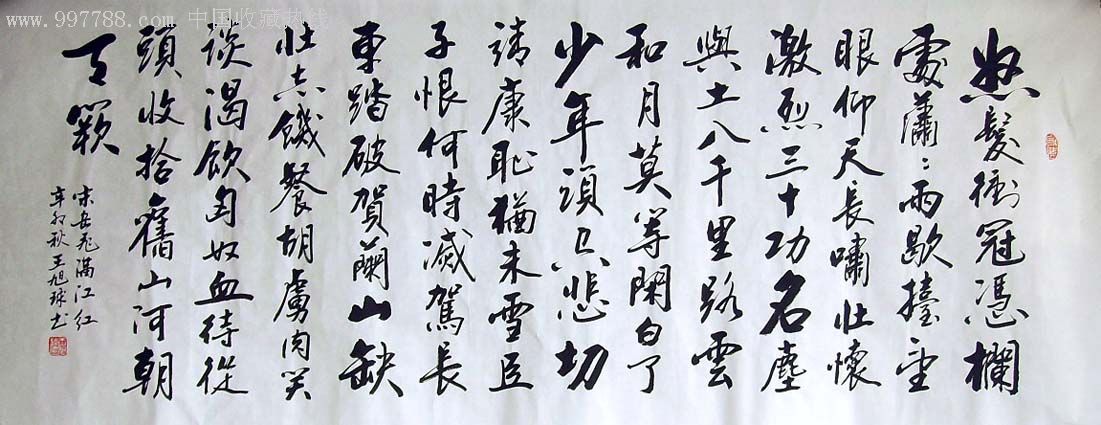 www.997788.com 中国收藏热线
怒髮衝冠憑欄
處蕭々雨歇擡望
眼仰天長嘯壯懷
激烈三十功名塵
與土八千里路雲
和月莫等閑白了
少年頭空悲切
靖康恥猶未雪臣
子恨何時滅駕長
車踏破賀蘭山缺
壯志饑餐胡虜肉笑
談渴飲匈奴血待從
頭收拾舊山河朝
天闕
宋岳飛滿江紅
辛卯秋王旭球书